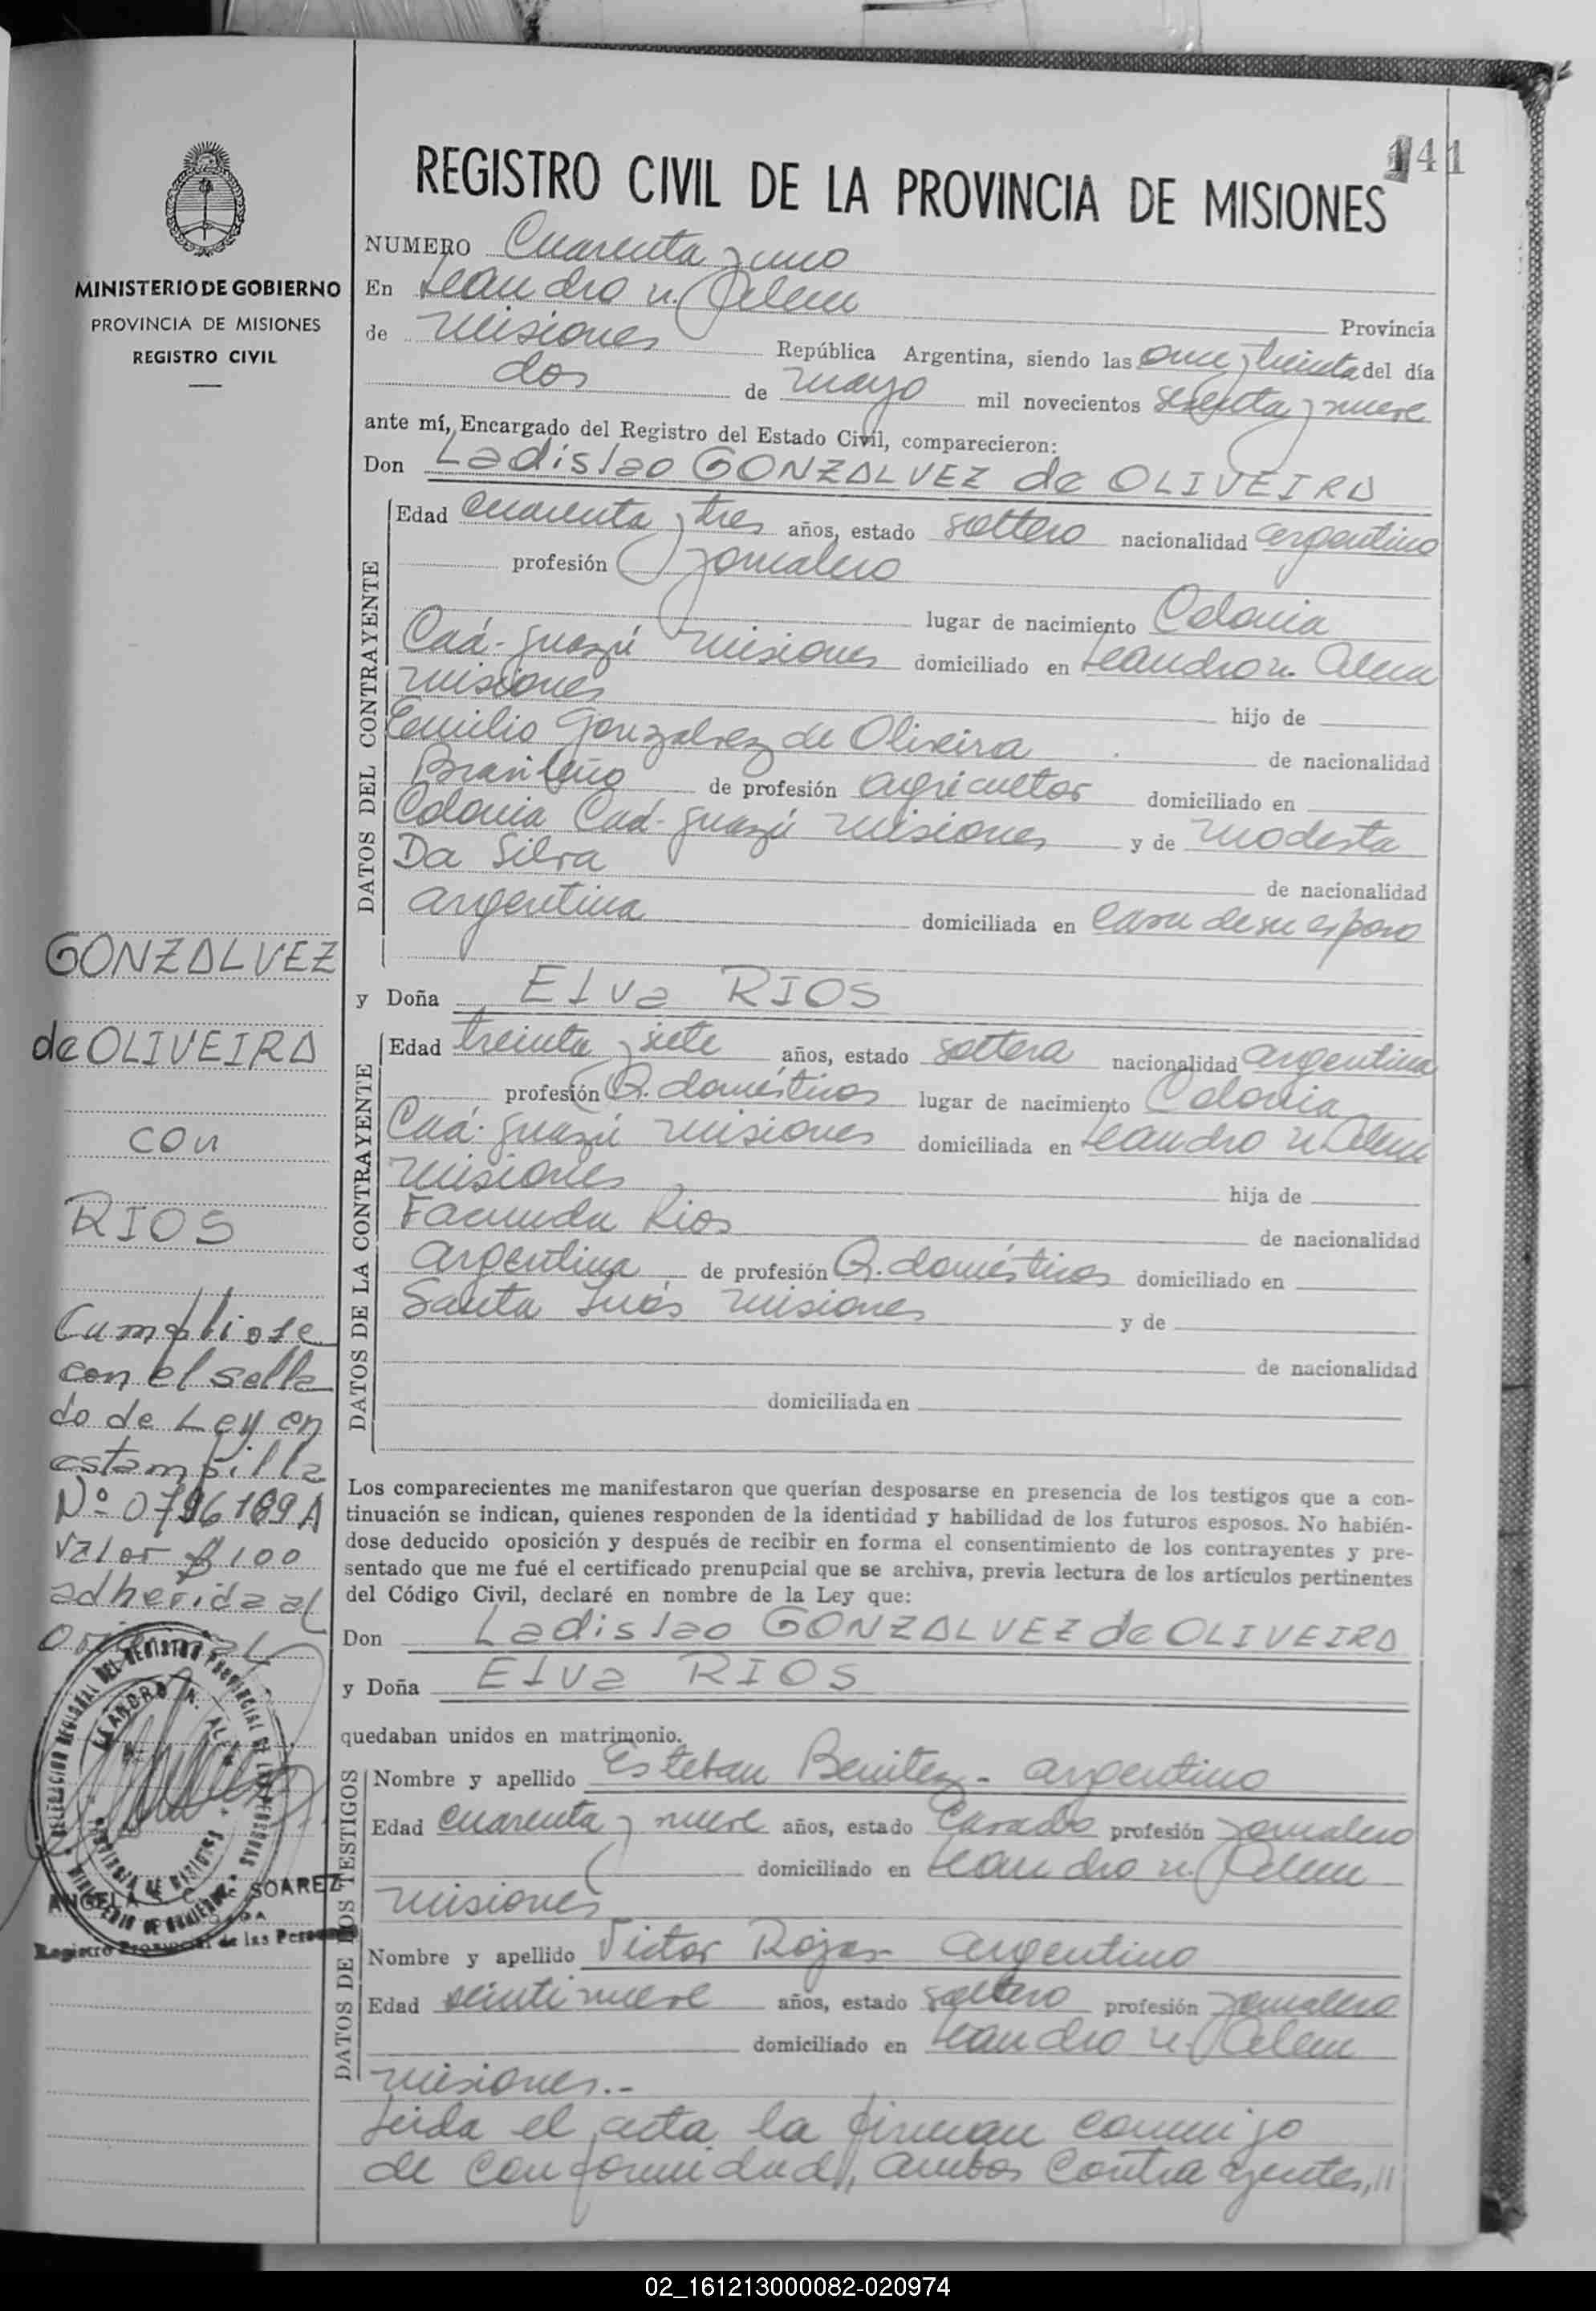 141
REGISTRO CIVIL DE LA PROVINCIA DE MISIONES
MINISTERIO DE GOBIERNO
PROVINCIA DE MISIONES
REGISTRO CIVIL
NUMERO Cuarenta y uno
En Leandro N. Alem
Provincia
de Misiones República Argentina, siendo las once y treinta del día
dos de mayo mil novecientos sesenta y nueve
ante mí, Encargado del Registro del Estado Civil, comparecieron:
Don Ladislao GONZALVEZ de OLIVEIRA
DATOS DEL CONTRAYENTE
Edad cuarenta y tres años, estado soltero nacionalidad argentino
profesión jornalero
lugar de nacimiento Colonia
Caá-Guazú Misiones domiciliado en Leandro N. Alem
Misiones
hijo de
Emilio Gonzalvez de Oliveira
de nacionalidad
Brasileño de profesión agricultor domiciliado en
Colonia Caá-Guazú Misiones y de Modesta
Da Silva
de nacionalidad
argentina domiciliada en casa de su esposo
y Doña Elva RIOS
DATOS DE LA CONTRAYENTE
Edad treinta y siete años, estado soltera nacionalidad argentina
profesión Q. domésticos lugar de nacimiento Colonia
Caá-Guazú Misiones domiciliada en Leandro N. Alem
Misiones
hija de
Facunda Rios
de nacionalidad
argentina de profesión Q. domésticos domiciliado en
Santa Inés Misiones
y de
de nacionalidad
domiciliada en
Los comparecientes me manifestaron que querían desposarse en presencia de los testigos que a con-
tinuación se indican, quienes responden de la identidad y habilidad de los futuros esposos. No habién-
dose deducido oposición y después de recibir en forma el consentimiento de los contrayentes y pre-
sentado que me fué el certificado prenupcial que se archiva, previa lectura de los artículos pertinentes
del Código Civil, declaré en nombre de la Ley que:
Don Ladislao GONZALVEZ de OLIVEIRA
y Doña Elva RIOS
quedaban unidos en matrimonio.
DATOS DE LOS TESTIGOS
Nombre y apellido Esteban Benitez - argentino
Edad cuarenta y nueve años, estado Casado profesión jornalero
domiciliado en Leandro N. Alem
Misiones
Nombre y apellido Victor Rojas - argentino
Edad veintinueve años, estado soltero profesión jornalero
domiciliado en Leandro N. Alem
Misiones.-
Leida el acta la firman conmigo
de conformidad, ambos contrayentes, //
GONZALVEZ
de OLIVEIRA
con
RIOS
Cumpliose
con el sella
do de Ley en
estampilla
Nº 0796189A
valor $ 100
adherida al
original
DELEGACION REGIONAL DEL REGISTRO PROVINCIAL DE LAS PERSONAS
LEANDRO N. ALEM
PROVINCIA DE MISIONES
MINISTERIO DE GOBIERNO
ANGELA S. C. de SOAREZ
Registro Provincial de las Personas
02_161213000082-020974